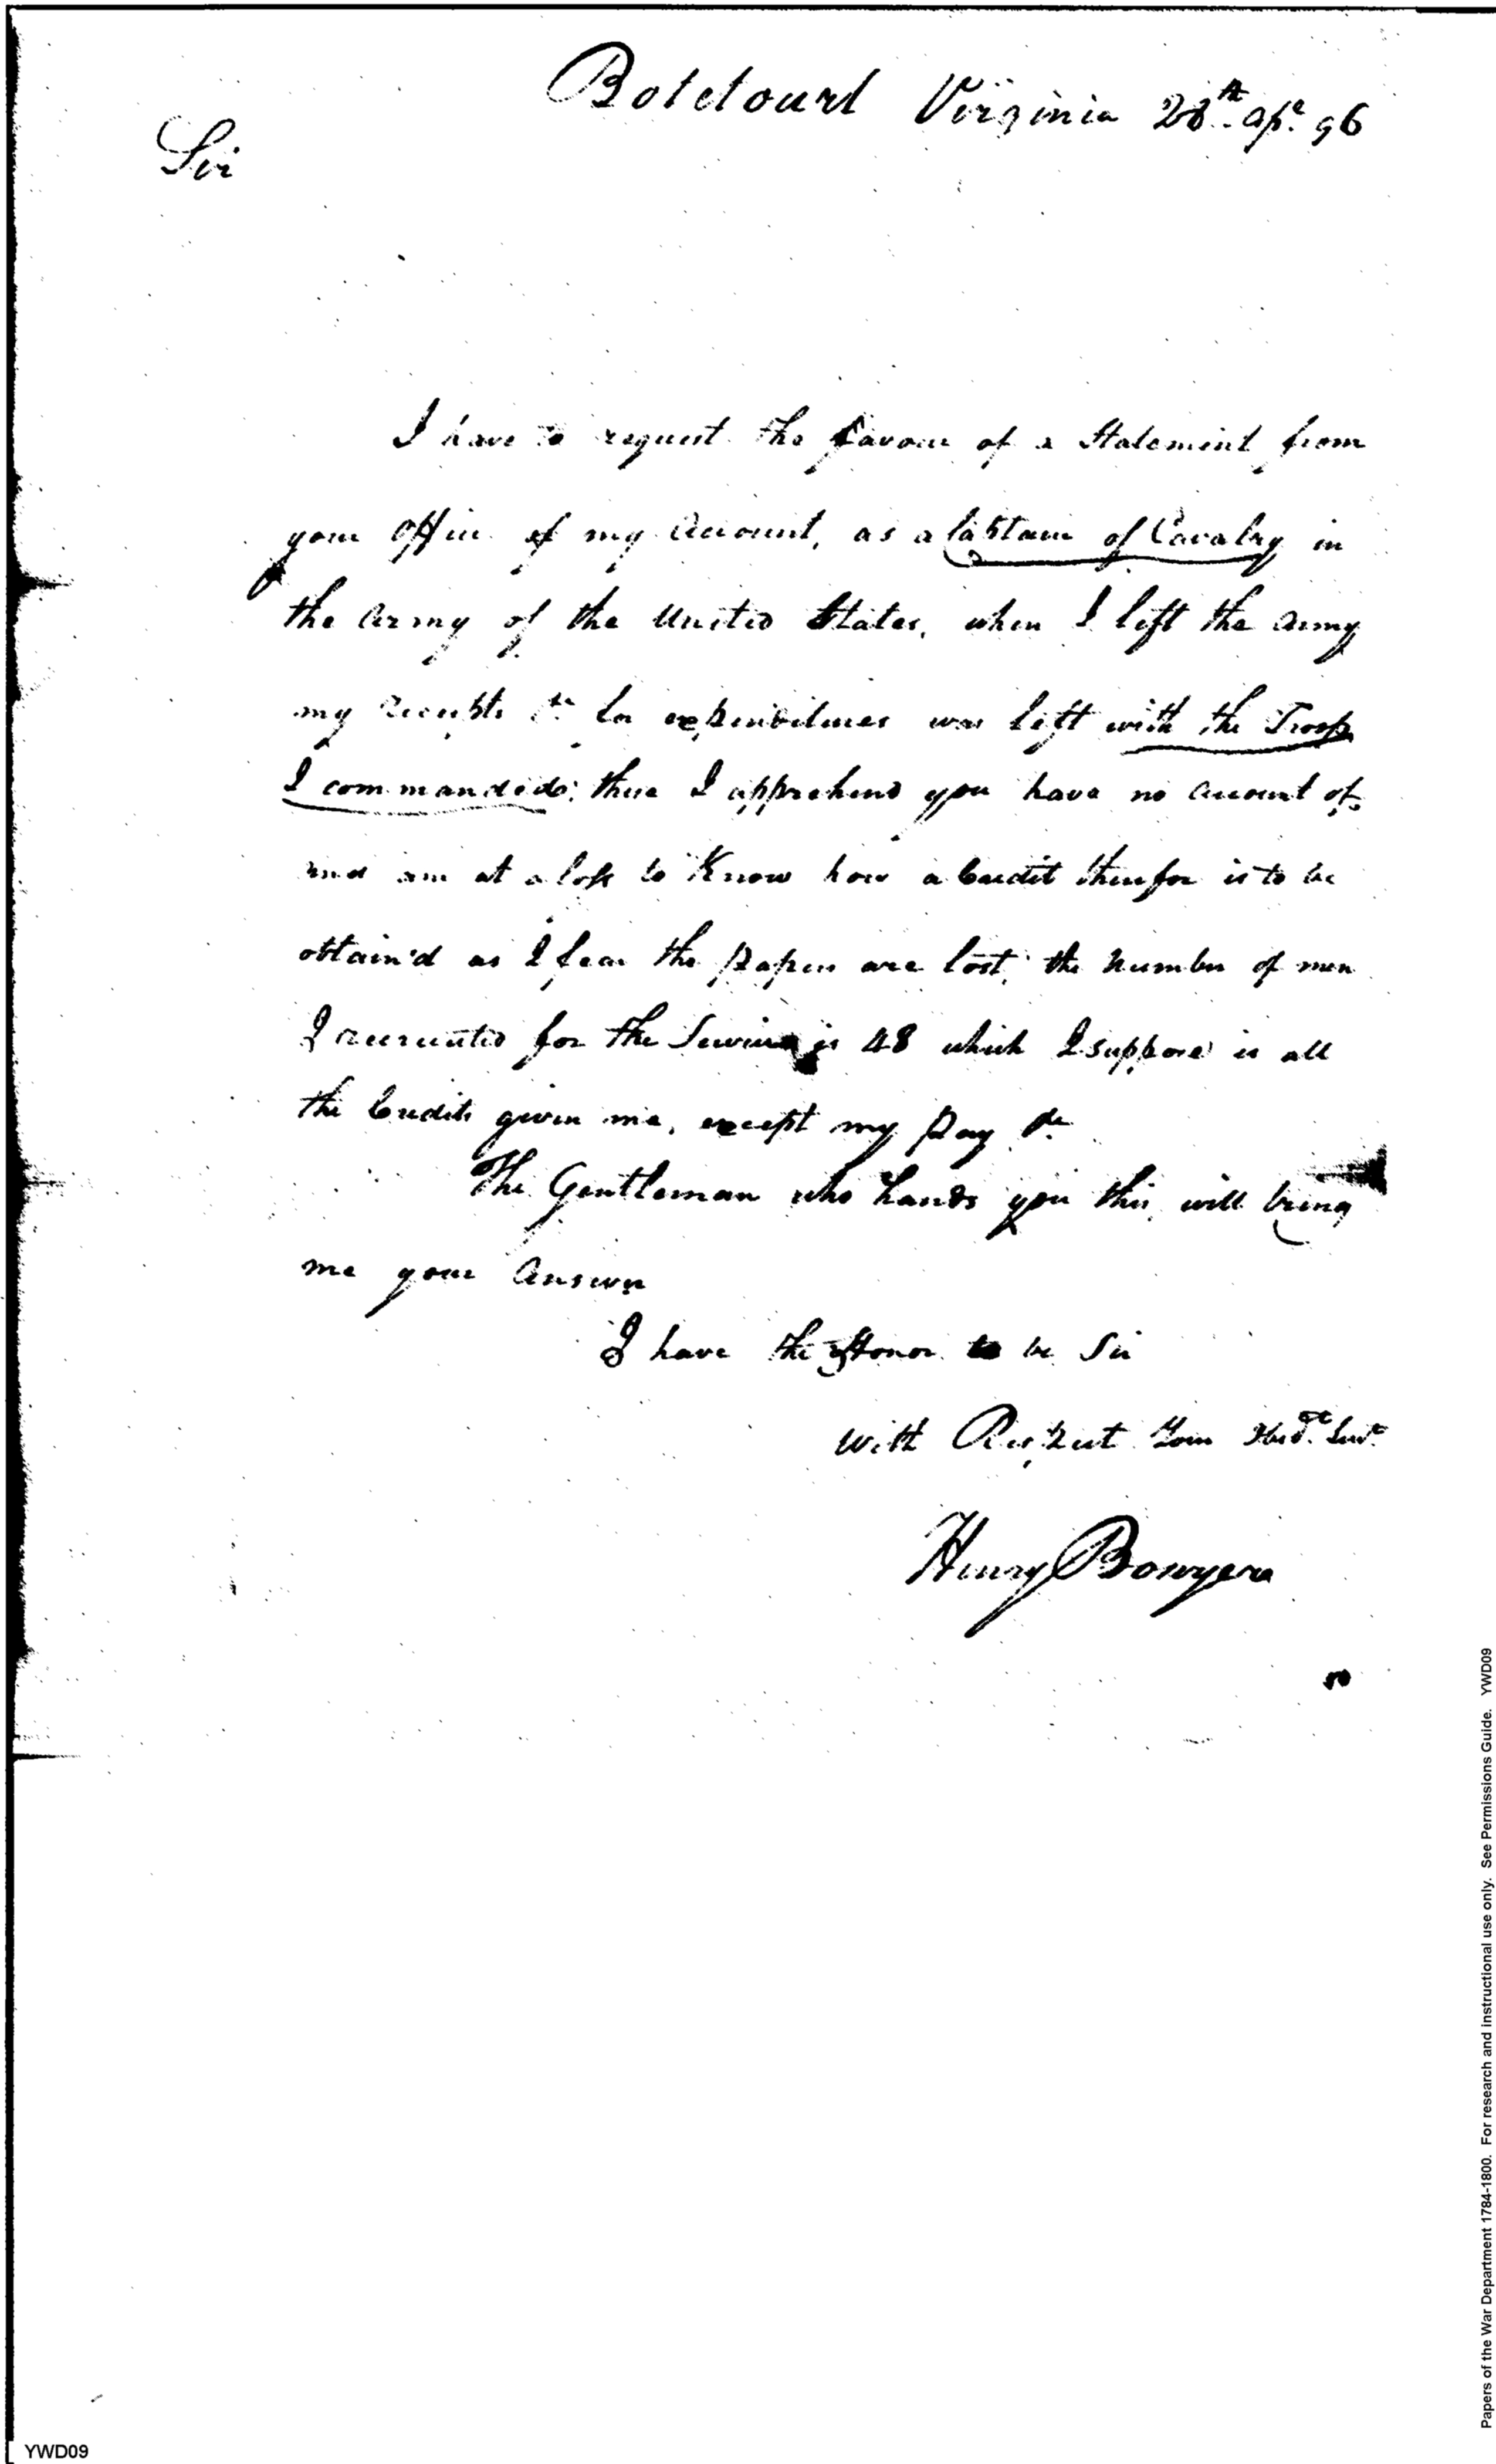 Botetourt Virginia 28th. Ap.e 96
Sir
I have to request the favour of a Statement from
your Office of my Account, as a Captain of Cavalry in
the Army of the United States, when I left the Army
my receipts &c for expenditures was left with the Troop
I commanded; these I apprehend you have no account of,
and am at a loss to Know how a Credit therefor is to be
obtain'd as I fear the papers are lost, the number of men
I recruited for the Service is 48 which I suppose is all
the Credits given me, except my pay &c
The Gentleman who hands you this, will bring
me your answer
I have the Honor to be Sir
with Respect Your Servt.
Henry Bowyer
Papers of the War Department 1784-1800. For research and instructional use only. See Permissions Guide. YWD09
YWD09